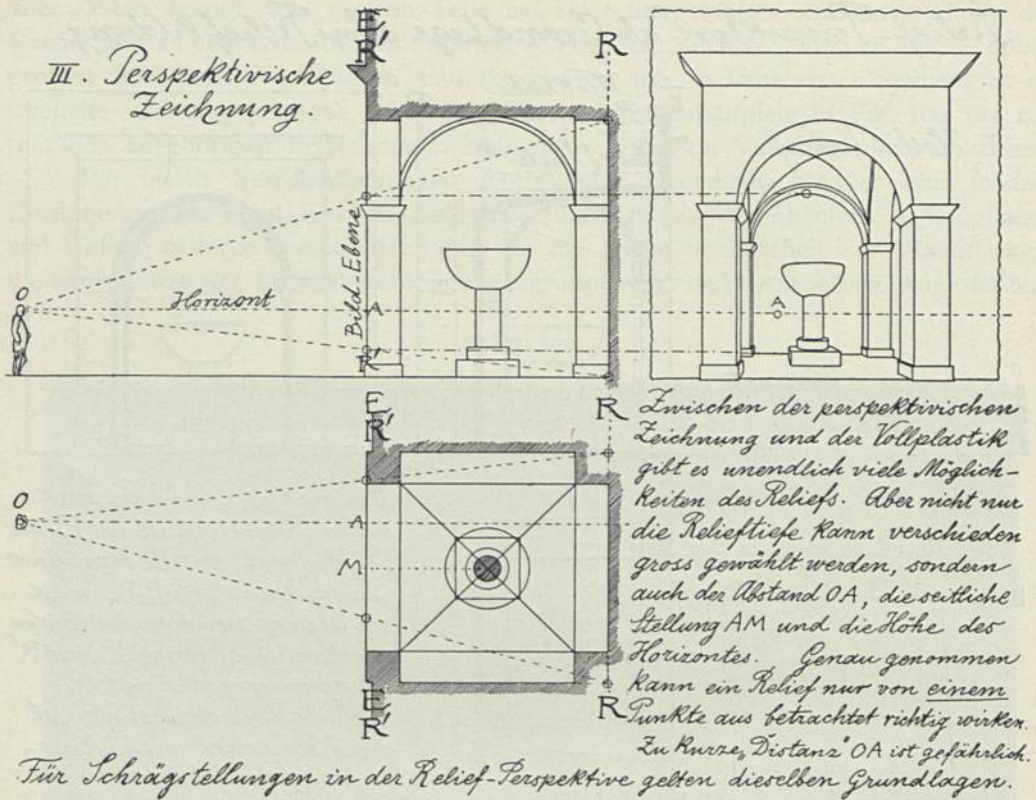 III. Perspektivische
Zeichnung.
E
R'
R
O
Horizont
Bild-Ebene
A
R'
A
E
R'
R
O
A
M
E
R'
R
Zwischen der perspektivischen
Zeichnung und der Vollplastik
gibt es unendlich viele Möglich-
keiten des Reliefs. Aber nicht nur
die Relieftiefe kann verschieden
gross gewählt werden, sondern
auch der Abstand OA, die seitliche
Stellung AM und die Höhe des
Horizontes. Genau genommen
kann ein Relief nur von einem
Punkte aus betrachtet richtig wirken.
Zu kurze „Distanz" OA ist gefährlich.
Für Schrägstellungen in der Relief-Perspektive gelten dieselben Grundlagen.